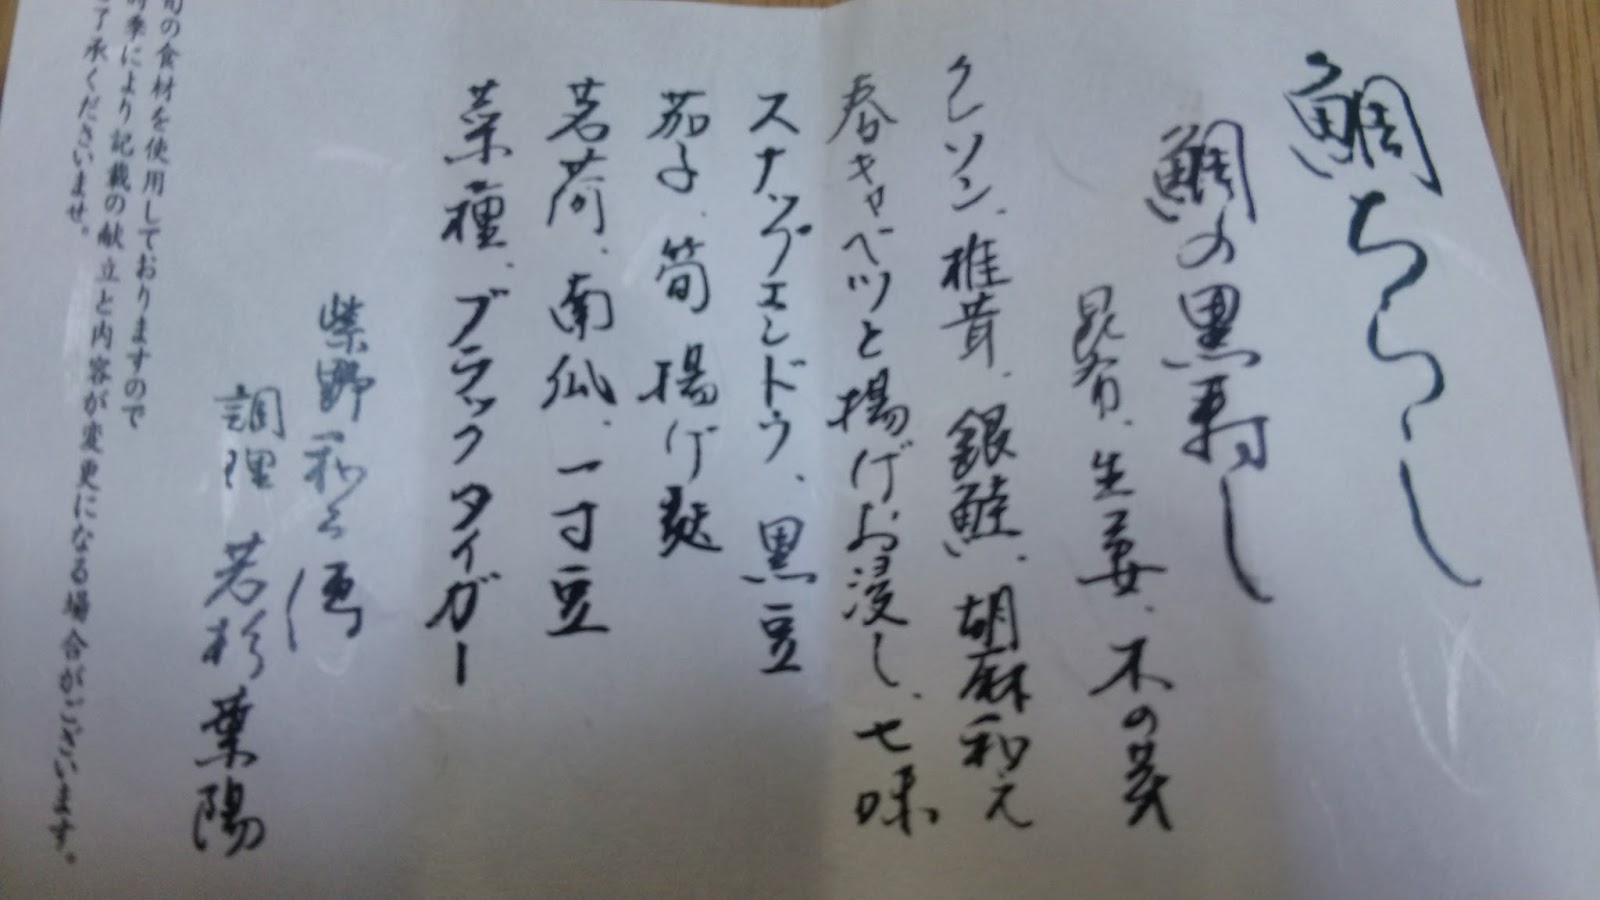 鯛ちらし
鯛の黒寿し
昆布、生姜、木の芽
クレソン、椎茸、銀鮭、胡麻和え
春キャベツと揚げお浸し、七味
スナップエンドウ、黒豆
茄子、筍、揚げ麩
茗荷、南瓜、一寸豆
菜種、ブラックタイガー
紫野和久傳
調理 若杉葉陽
旬の食材を使用しておりますので
時季により記載の献立と内容が変更になる場合がございます。
ご了承くださいませ。